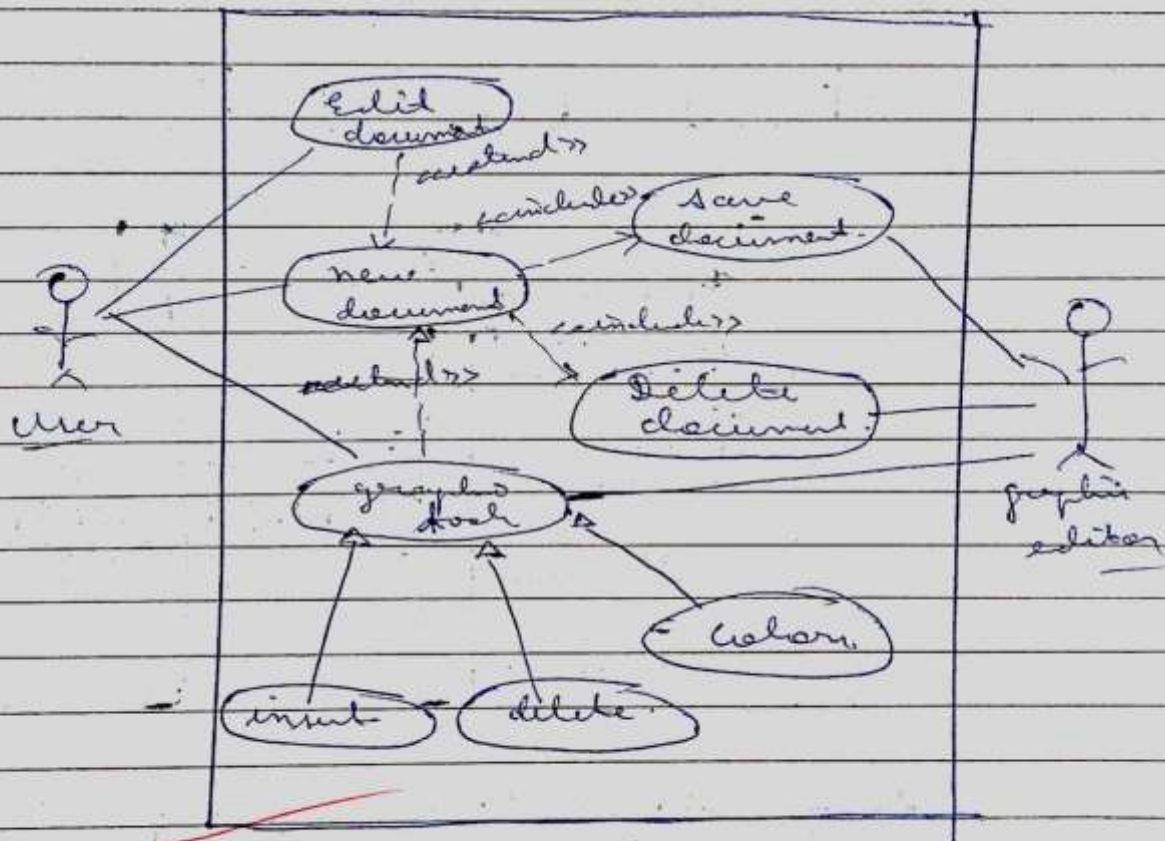 Edit
document
<<extend>>
<<include>>
Save
document.
new
document
<<include>>
<<extend>>
Delete
document.
User
graphic
editor
graphic
tool
colour.
insert
delete.